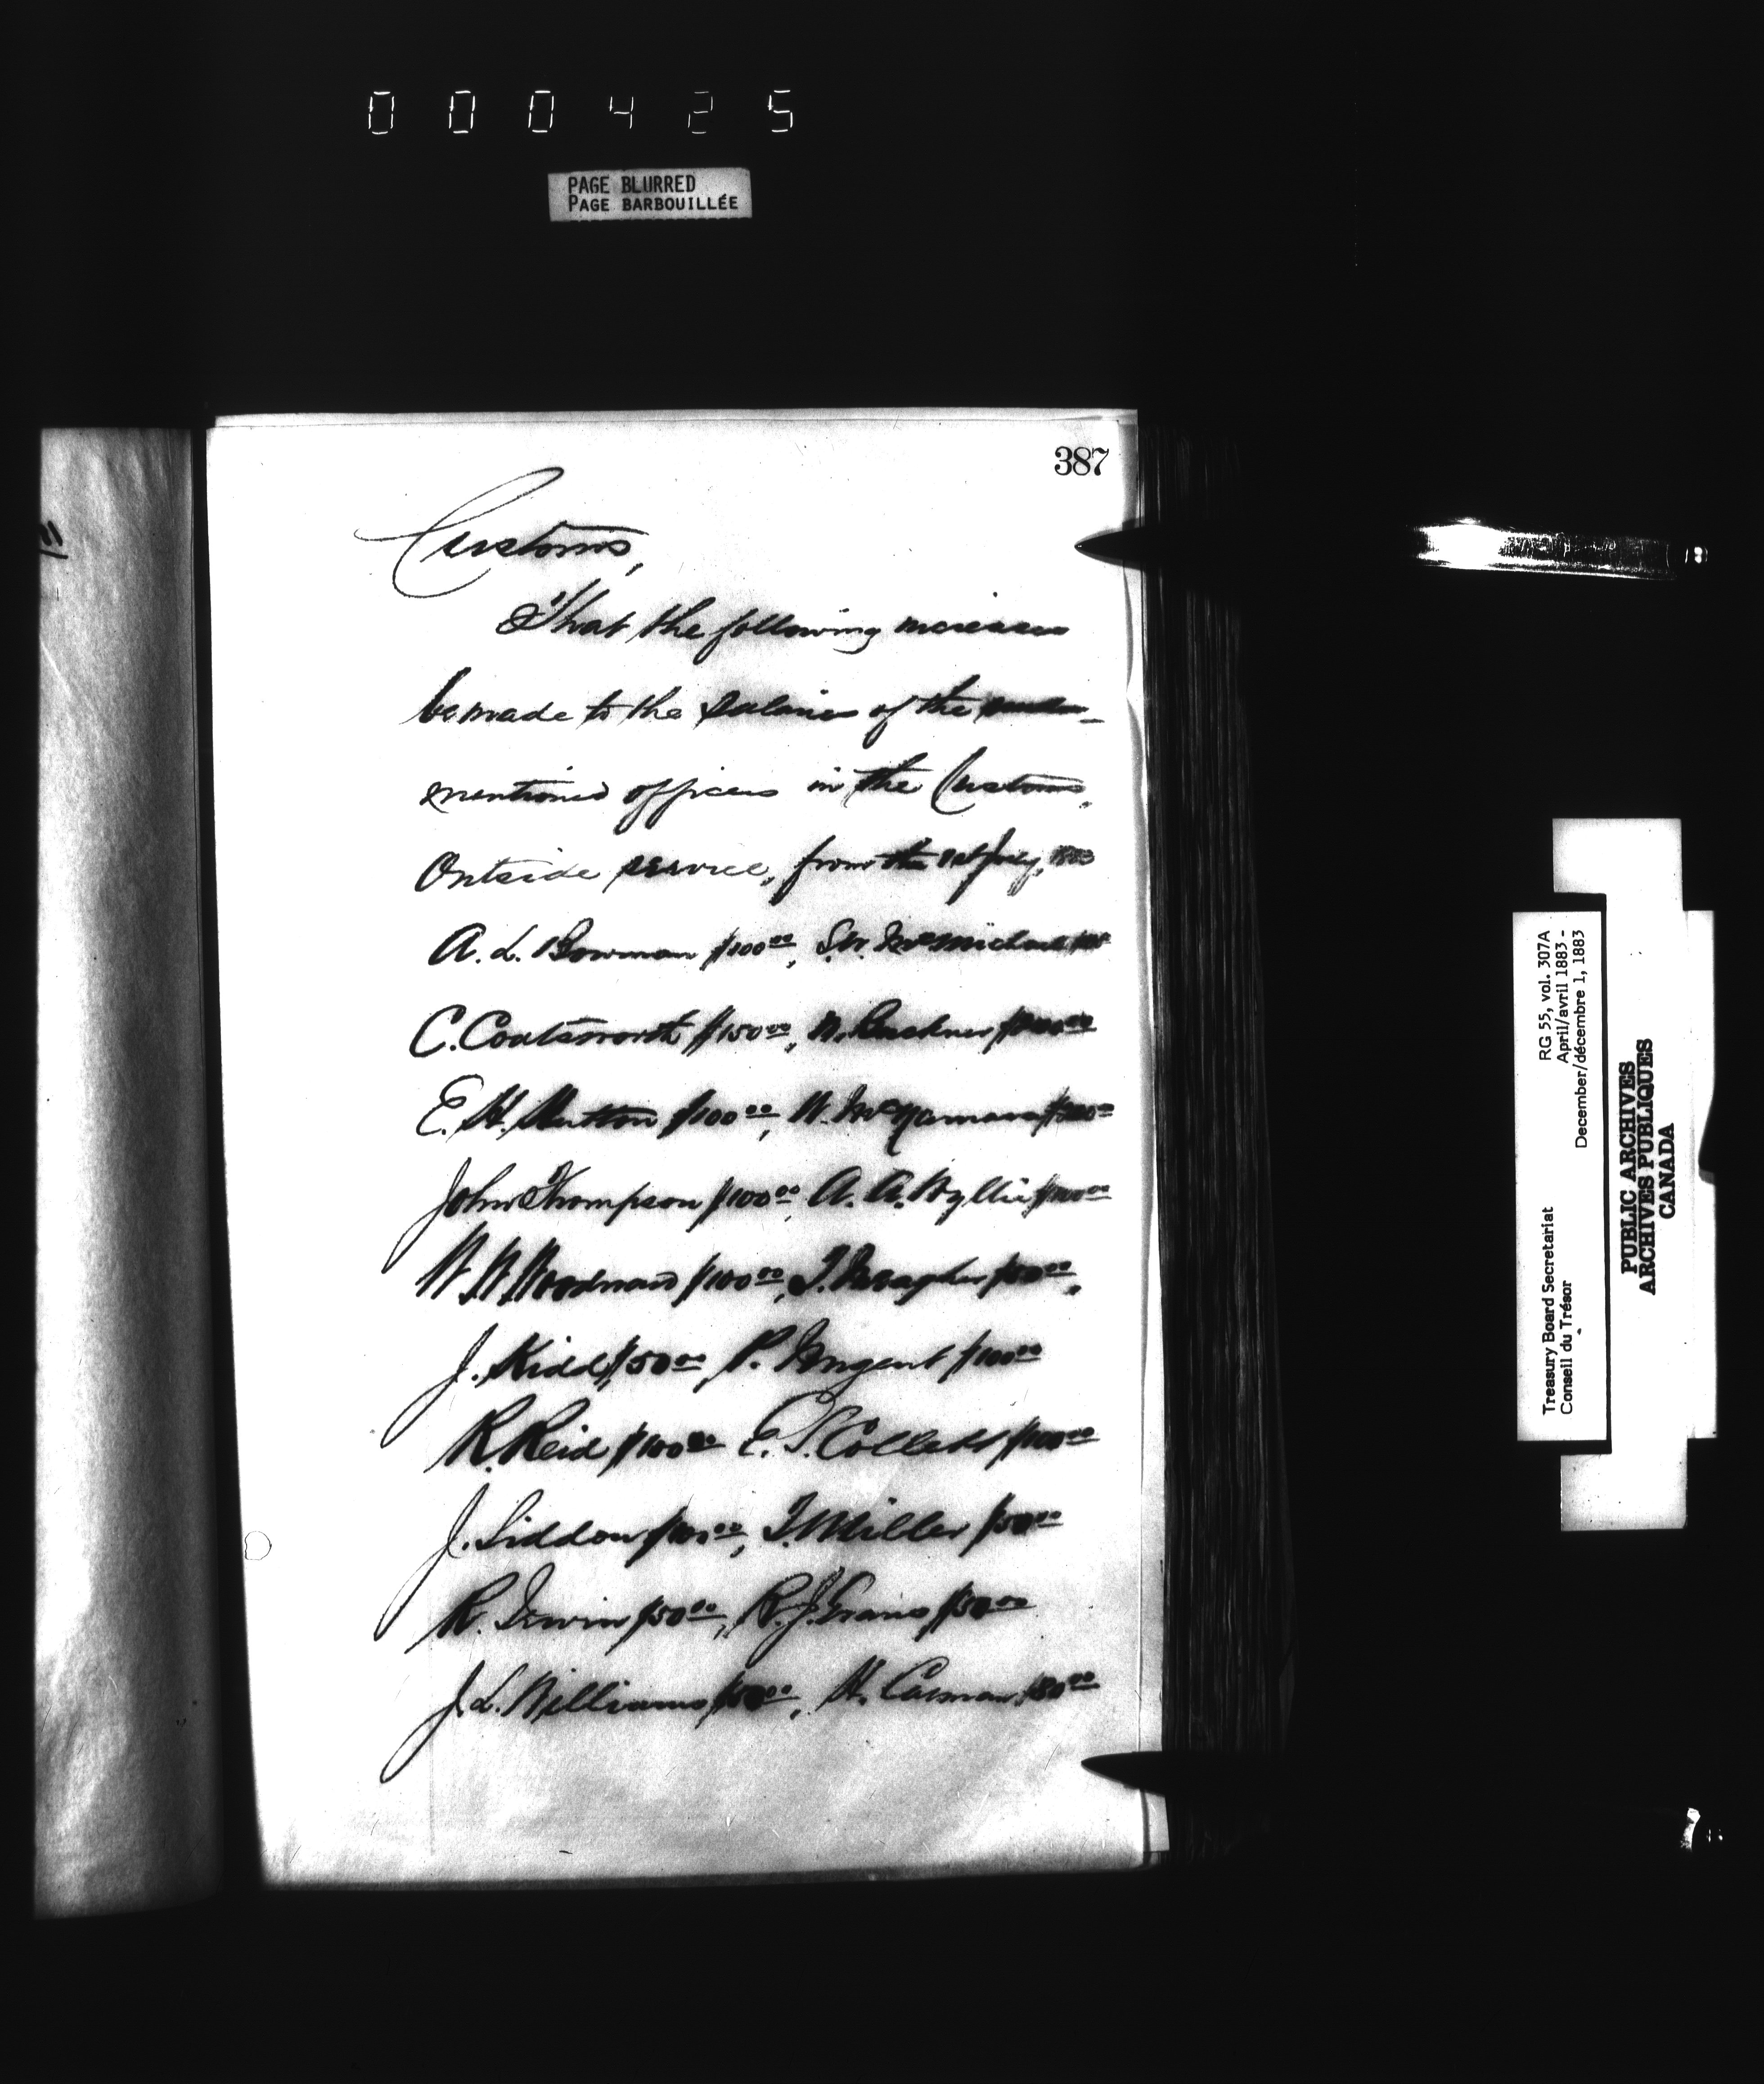 000425
PAGE BLURRED
PAGE BARBOUILLÉE
387
Customs,
That the following increases
be made to the salaries of the under-
mentioned officers in the Customs,
Outside service, from the 1st July, 1883
A. L. Bowman $100 00, S. W. McMichael
C. Coatsworth $150 00, N.
E. H. Hutton $100 00, W. McNamara
John Thompson $100 00, A. A. Wyllie $100 00
W. W. Woodward $100 00, T. $50 00,
J. Kidd $50 00, P. $100 00
R. Reid $100 00 E. S. Collett $100 00
J. Siddon $100 00, T. Miller $50 00
R. Irwin $50 00, R. J. Evans $50 00
J. L. Williams $50 00, H. $80 00
Treasury Board Secretariat RG 55, vol. 307A
Conseil du Trésor April/avril 1883 -
December/décembre 1, 1883
PUBLIC ARCHIVES
ARCHIVES PUBLIQUES
CANADA